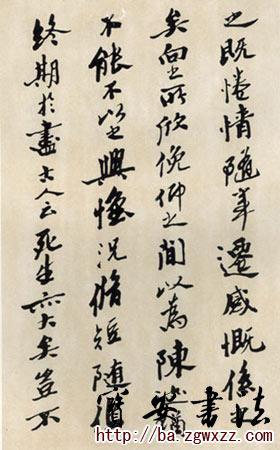 之既倦情隨事遷感慨係之
矣向之所欣俛仰之間以為陳迹猶
不能不以之興懷況脩短隨化
終期於盡古人云死生亦大矣豈不
書法
http://ba.zgwxzz.com